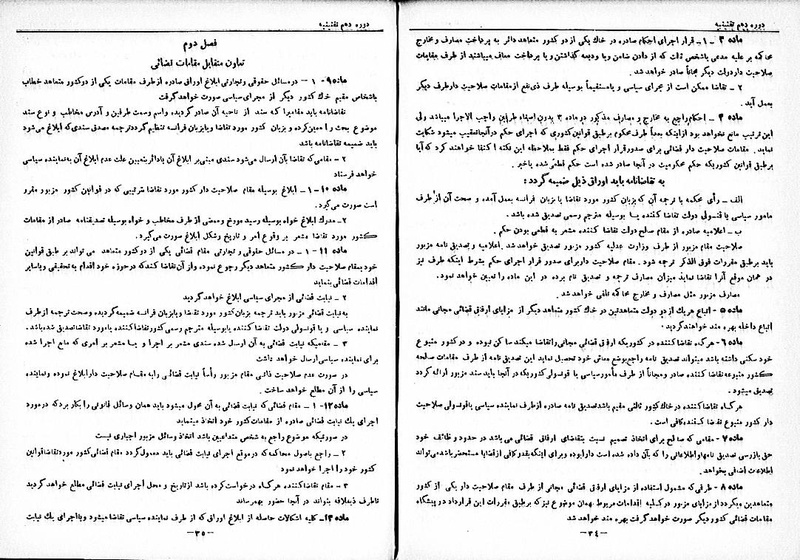 دوره دهم تقنینیه
ماده ۳ - ۱ - قرار اجرای احکام صادره در خاك یکی از دو کشور متعاهد دائر به پرداخت مصارف و مخارج
محاکمه بر علیه مدعی یا شخص ثالث که از دادن ضامن ویا ودیعه گذاشتن ویا پرداخت معاف میباشند از طرف مقامات
صلاحیت دار دولت دیگر مجاناً صادر خواهد شد.
۲ - تقاضا ممکن است از مجرای سیاسی و یا مستقیماً بوسیله طرف ذینفع از مقامات صلاحیت دار طرف دیگر
بعمل آید.
ماده ۴ - احکام راجع به مخارج و مصارف مذکور در ماده ۳ بدون استماع طرفین واجب الاجرا میباشد ولی
این ترتیب مانع نخواهد بود از اینکه بعداً طرف محکوم بر طبق قوانین کشوری که اجرای حکم در آنجا تعقیب میشود شکایت
نماید. مقامات صلاحیت دار قضائی برای صدور قرار اجرای حکم فقط بملاحظه این نکته اکتفا خواهند کرد که آیا
بر طبق قوانین کشوریکه حکم محکومیت در آنجا صادر شده است حکم قطعی شده یا خیر.
به تقاضانامه باید اوراق ذیل ضمیمه گردد:
الف - رأی محکمه با ترجمه آن که بزبان کشور مورد تقاضا یا بزبان فرانسه بعمل آمده و صحت آن از طرف
مامور سیاسی یا قنسولی دولت تقاضا کننده یا بوسیله مترجم رسمی تصدیق شده باشد.
ب - اعلامیه صادره از مقام صالح دولت تقاضا کننده مشعر به قطعی بودن حکم.
صلاحیت مقام مزبور از طرف وزارت عدلیه کشور مزبور تصدیق خواهد شد. اعلامیه و تصدیق نامه مزبور
باید بر طبق مقررات فوق الذکر ترجمه شود. مقام صلاحیت دار برای صدور قرار اجرای حکم بشرط اینکه طرف نیز
در همان موقع آنرا تقاضا نماید میزان مصارف ترجمه و تصدیق نام برده در این ماده را تعیین خواهد نمود.
مصارف مزبور مثل مصارف و مخارج محاکمه تلقی خواهد شد.
ماده ۵ - اتباع هر یك از دو دولت متعاهدتین در خاك کشور متعاهد دیگر از مزایای ارفاق قضائی مجانی مانند
اتباع داخله بهره مند خواهند گردید.
ماده ۶ - هر گاه تقاضا کننده در کشوریکه ارفاق قضائی مجانی را تقاضا میکند ساکن نبوده و در کشور متبوع
خود سکنی داشته باشد میتواند تصدیق نامه راجع بوضع معاش خود تحصیل نماید این تصدیق نامه از طرف مقامات صالحه
کشور متبوعه تقاضا کننده صادر و مجاناً از طرف مأمور سیاسی یا قنسولی کشوریکه در آنجا باید سند مزبور ارائه گردد
تصدیق میشود.
هر گاه تقاضا کننده در خاك کشور ثالثی مقیم باشد تصدیق نامه صادره از طرف نماینده سیاسی یا قنسولی صلاحیت
دار کشور متبوع تقاضا کننده کافی است.
ماده ۷ - مقامی که صالح برای اتخاذ تصمیم نسبت بتقاضای ارفاق قضائی می باشد در حدود و ظائف خود
حق بازرسی تصدیق نامها و اطلاعاتی را که بآن داده شده است دارا بوده و برای اینکه بقدر کافی از قضایا مستحضر باشد می تواند
اطلاعات اضافی بخواهد.
ماده ۸ - طرفی که مشمول استفاده از مزایای ارفاق قضائی مجانی از طرف مقام صلاحیت دار یکی از کشور
متعاهدین میگردد از مزایای مزبور در کلیه اقدامات مربوط بهمان موضوع نیز که بطبق مقررات این قرارداد در پیشگاه
مقامات قضائی کشور دیگر صورت خواهد گرفت بهره مند خواهد شد
-۳۴-
دوره دهم تقنینیه
فصل دوم
تعاون متقابل مقامات قضائی
ماده ۹ - ۱ - در مسائل حقوقی و تجارتی ابلاغ اوراق صادره از طرف مقامات یکی از دو کشور متعاهد خطاب
باشخاص مقیم خاك کشور دیگر از مجرای سیاسی صورت خواهد گرفت
تقاضانامه باید مقامیرا که سند از ناحیه آن صادر گردیده، و اسم وسمت طرفین و آدرس مخاطب و نوع سند
موضوع بحث را معین کرده و بزبان کشور مورد تقاضا ویا بزبان فرانسه تنظیم گردد ترجمه مصدق سندی که ابلاغ می شود
باید ضمیمه تقاضانامه باشد
۲ - مقامی که تقاضا بآن ارسال می شود سندی مبنی بر ابلاغ آن یا دائر بتعیین علت عدم ابلاغ آن به نماینده سیاسی
خواهد فرستاد
ماده ۱۰ - ۱ - ابلاغ بوسیله مقام صلاحیت دار کشور مورد تقاضا بترتیبی که در قوانین کشور مزبور مقرر
است صورت می گیرد.
۲ - مدرك ابلاغ خواه بوسیله رسید مورخ و ممضی از طرف مخاطب و خواه بوسیله تصدیقنامه صادر از مقامات
کشور مورد تقاضا مشعر بر وقوع امر و تاریخ وشکل ابلاغ صورت می گیرد.
ماده ۱۱ - ۱ - در مسائل حقوقی و تجارتی مقام قضائی یکی از دو کشور متعاهد می تواند بر طبق قوانین
خود بمقام صلاحیت دار کشور متعاهد دیگر رجوع نموده واز آن تقاضا کند که در حوزه خود اقدام به تحقیق ویا سایر
اقدامات قضائی بنماید
۲ - نیابت قضائی از مجرای سیاسی ابلاغ خواهد گردید
به نیابت قضائی مزبور باید ترجمه بزبان کشور مورد تقاضا ویا بزبان فرانسه ضمیمه گردیده و صحت ترجمه از طرف
نماینده سیاسی و یا قنسولی دولت تقاضا کننده یا بوسیله مترجم رسمی کشور تقاضا کننده یا مورد تقاضا تصدیق شده باشد.
۳ - مقامیکه نیابت قضائی به آن ارسال شده سندی مشعر بر اجرا و یا مشعر بر امری که مانع اجرا شده
برای نماینده سیاسی ارسال خواهد داشت
در صورت عدم صلاحیت ذاتی مقام مزبور رأساً نیابت قضائی را به مقام صلاحیت دار ابلاغ نموده و نماینده
سیاسی را از آن مطلع خواهد ساخت.
ماده ۱۲ - ۱ - مقام قضائی که نیابت قضائی به آن محول میشود باید همان وسائل قانونی را بکار برد که در مورد
اجرای یك نیابت قضائی صادره از مقامات کشور خود اتخاذ مینماید
در صورتیکه موضوع راجع به شخص متداعیین باشد اتخاذ وسائل مزبور اجباری نیست
۲ - راجع باصول محاکمه که در موقع اجرای نیابت قضائی باید معمول گردد مقام قضائی کشور مورد تقاضا قوانین
کشور خود را اجرا خواهد نمود
۳ - مقام تقاضا کننده هر گاه درخواست کرده باشد از تاریخ و محل اجرای نیابت قضائی مطلع خواهد گردید
تا طرف ذیعلاقه بتواند در آنجا حضور بهمرساند
ماده ۱۳ - کلیه اشکالات حاصله از ابلاغ اوراقی که از طرف نماینده سیاسی تقاضا میشود ویا اجرای یك نیابت
-۳۵-